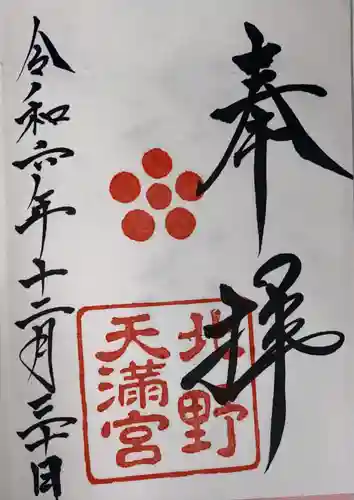 奉拝
北野
天満宮
令和六年十二月三十日